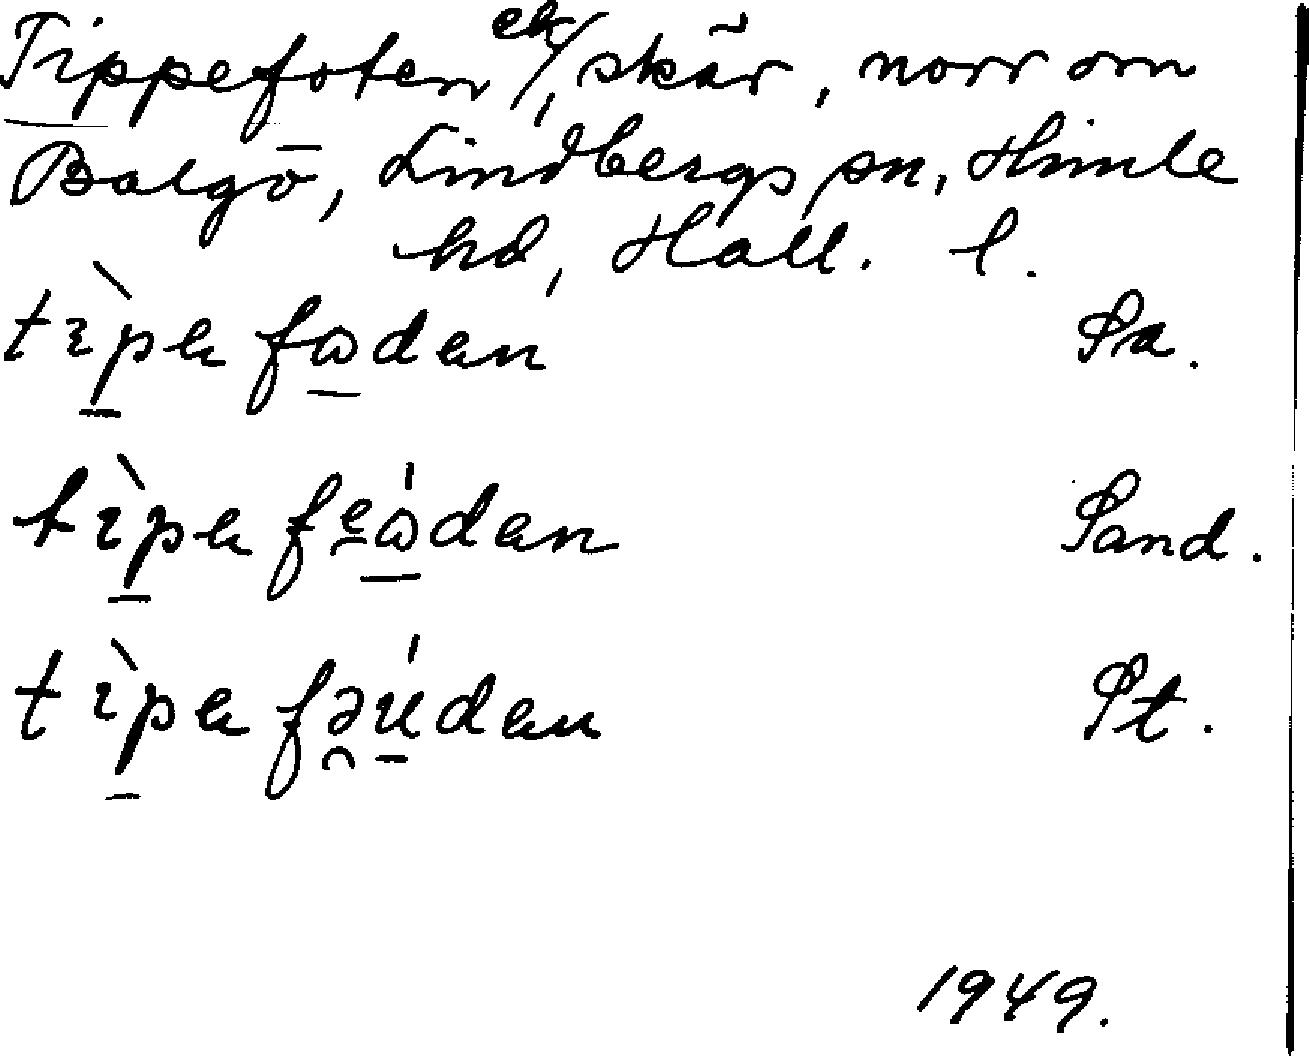 Tippefoten ek/, skär, norr om
Balgö, Lindbergs sn, Himle
hd, Hall. l.
tìpe foden Sa.
tìpe feóden Sand.
tìpe fəúden St.
1949.